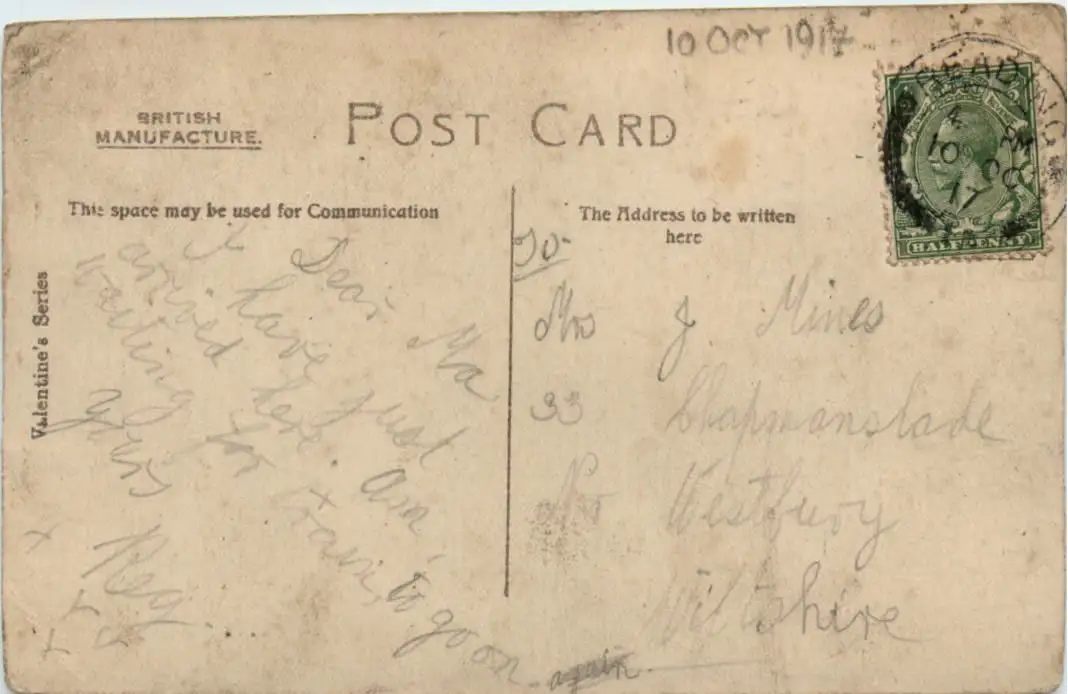 10 OCT 1917
BRITISH
MANUFACTURE.
POST CARD
This space may be used for Communication
The Address to be written
here
Valentine's Series
Dear Ma
I have just
arrived here. Am
waiting for train, to go on again
yours
Reg
To
Mrs J Mines
33 Chapmanslade
Nr Westbury
Wiltshire
READING
PM
10 OC
17
HALFPENNY